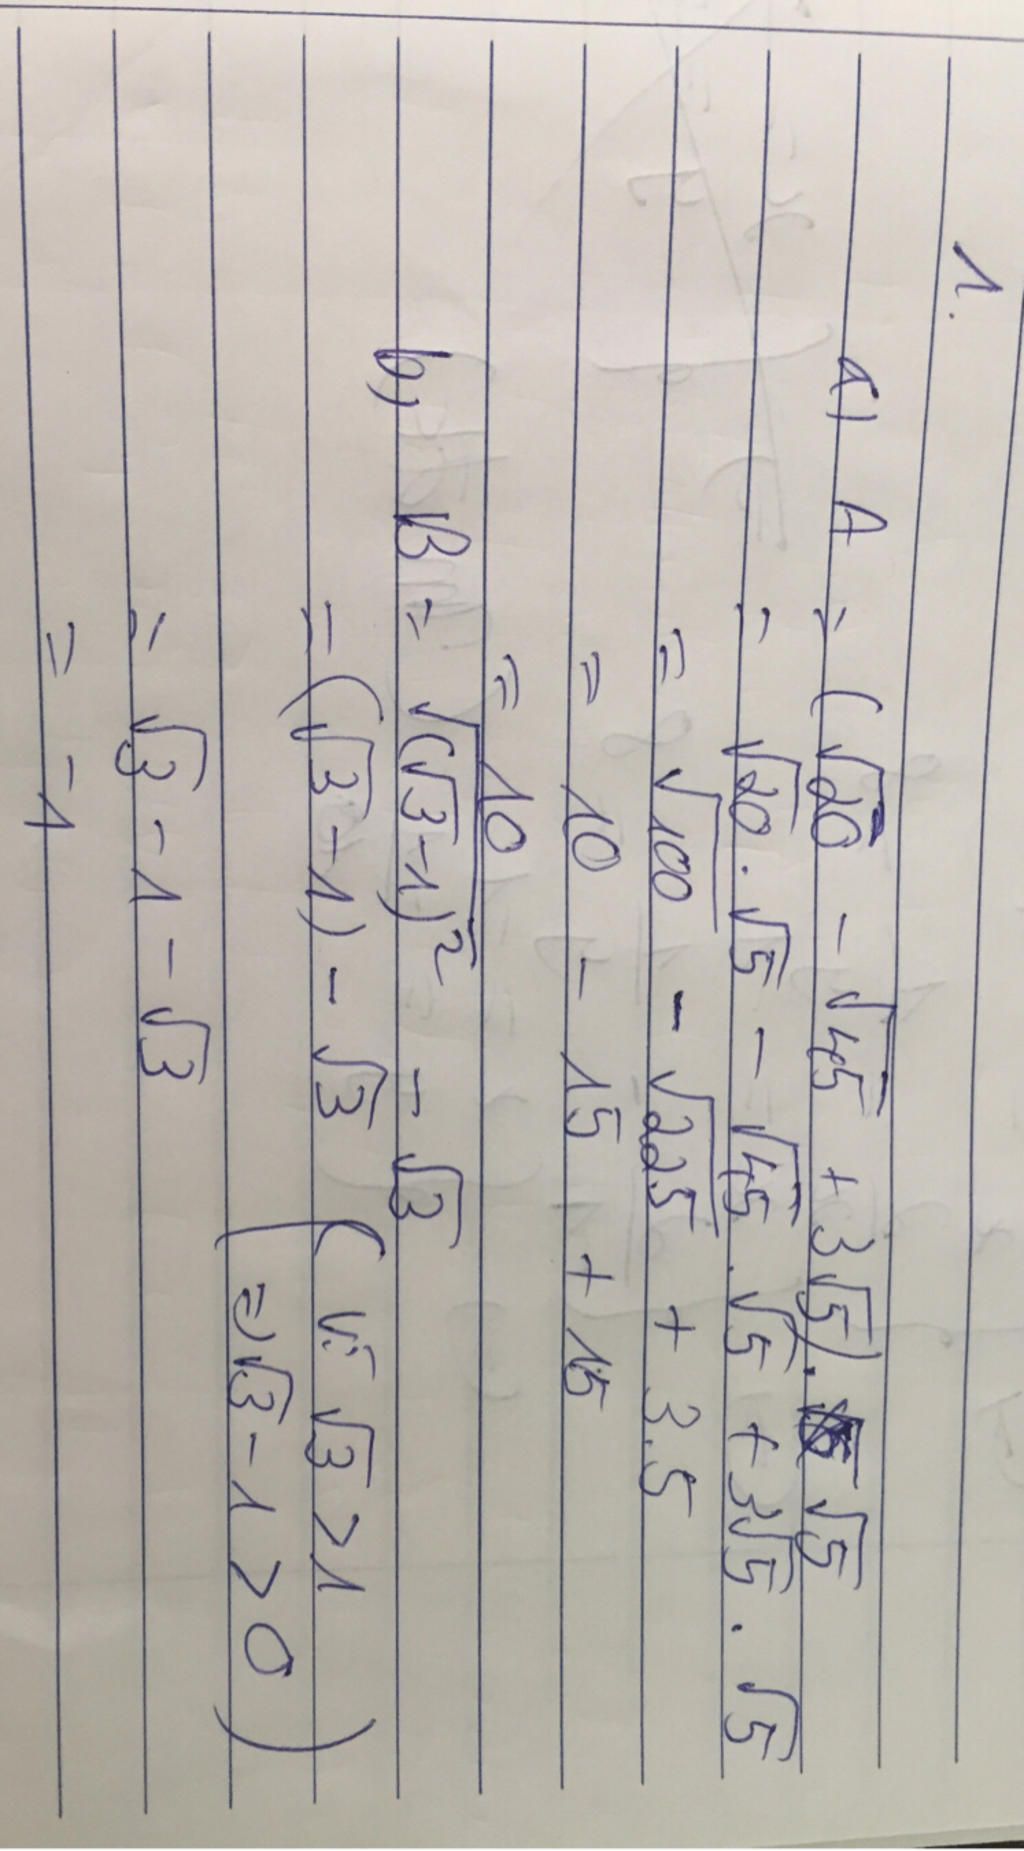 1.
a) A = (√20 - √45 + 3√5). √5
= √20 . √5 - √45 . √5 + 3√5 . √5
= √100 - √225 + 3.5
= 10 - 15 + 15
= 10
b) B = √(√3-1)² - √3
= (√3-1) - √3 (Vì √3 > 1
=> √3 - 1 > 0)
= √3 - 1 - √3
= -1